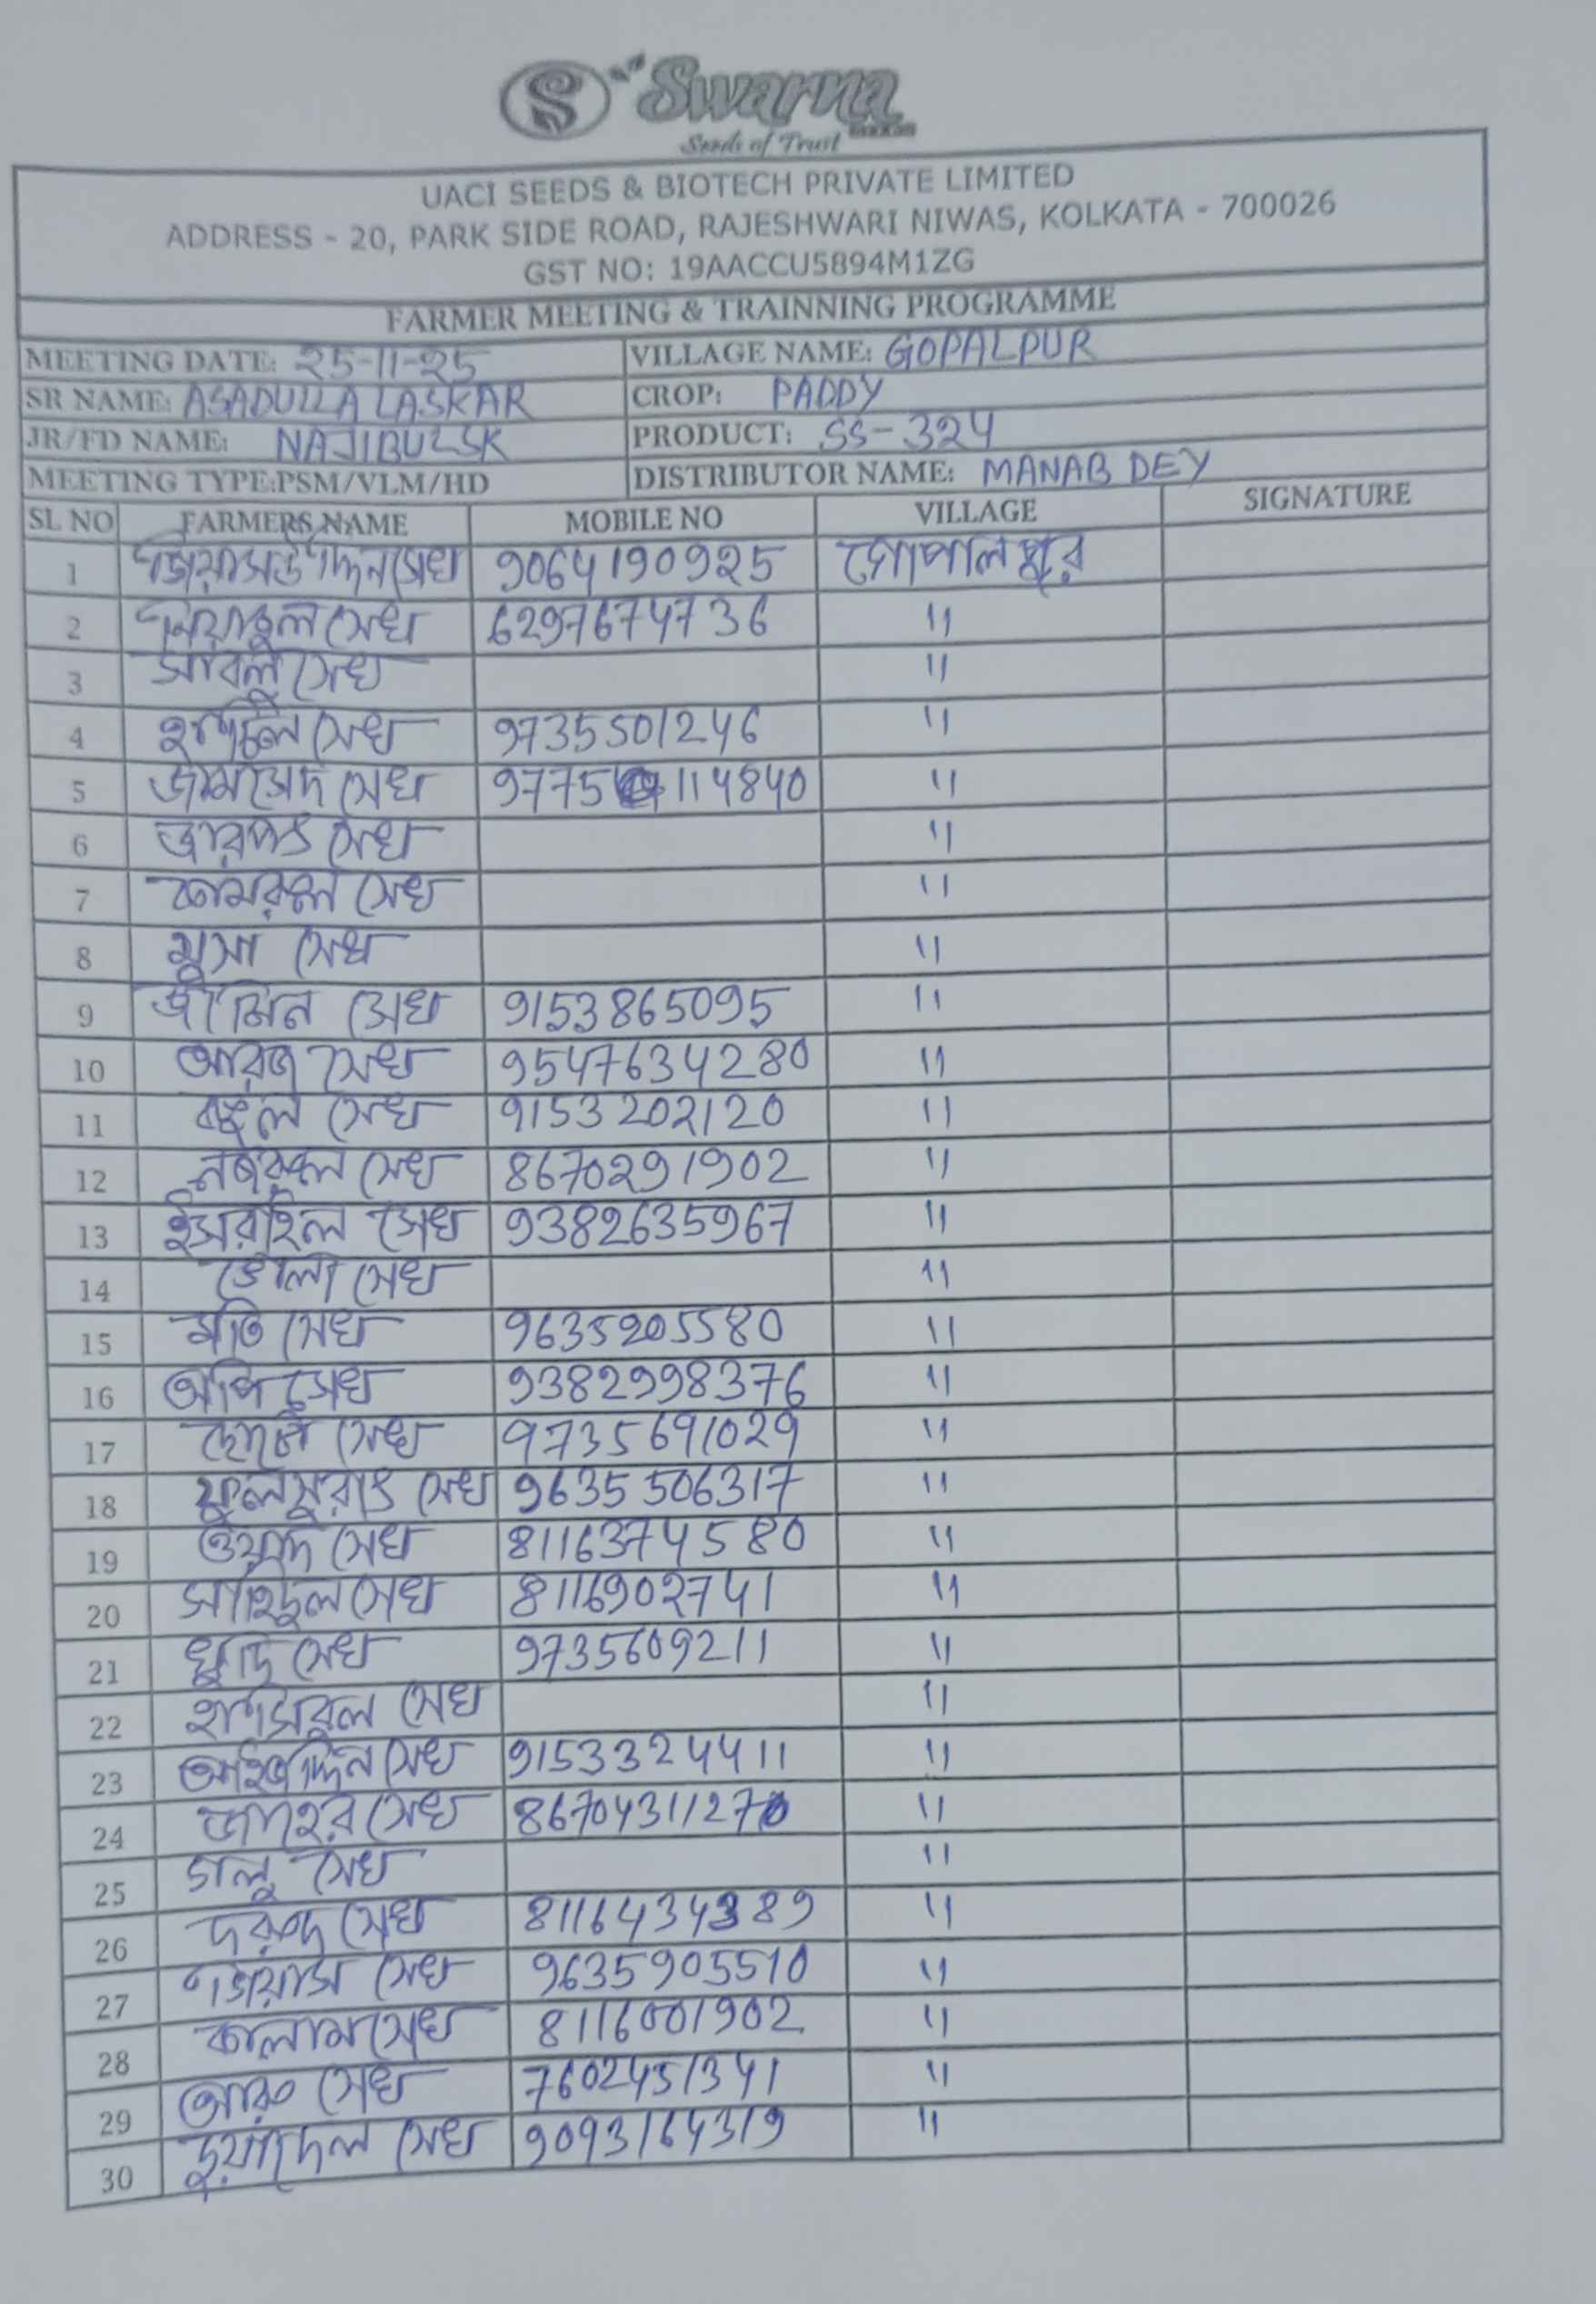 S Swarna
Seeds of Trust
UACI SEEDS & BIOTECH PRIVATE LIMITED
ADDRESS - 20, PARK SIDE ROAD, RAJESHWARI NIWAS, KOLKATA - 700026
GST NO: 19AACCU5894M1ZG
FARMER MEETING & TRAINNING PROGRAMME
MEETING DATE: 25-11-25 VILLAGE NAME: GOPALPUR
SR NAME: ASADULLA LASKAR CROP: PADDY
JR/FD NAME: NAJIBUL SK PRODUCT: SS-324
MEETING TYPE:PSM/VLM/HD DISTRIBUTOR NAME: MANAB DEY
SL NO FARMERS NAME MOBILE NO VILLAGE SIGNATURE
1 সেখ 9064190925 গোপালপুর
2 সেখ 6297674736 "
3 সাবলু সেখ "
4 সেখ 9735501246 "
5 জামসেদ সেখ 9775 114840 "
6 সেখ "
7 কামরুল সেখ "
8 মুসা সেখ "
9 সেখ 9153865095 "
10 আরজ সেখ 9547634280 "
11 সেখ 9153202120 "
12 নজরুল সেখ 8670291902 "
13 ইসরাইল সেখ 9382635967 "
14 ভোলা সেখ "
15 মতি সেখ 9635205580 "
16 সেখ 9382998376 "
17 সেখ 9735691029 "
18 ফুলসুরাত সেখ 9635506317 "
19 সেখ 8116374580 "
20 সাইদুল সেখ 8116902741 "
21 ক্ষুদি সেখ 9735609211 "
22 সেখ "
23 সেখ 9153324411 "
24 সেখ 8670431127 "
25 ডালু সেখ "
26 দরুদ সেখ 8116434389 "
27 গিয়াস সেখ 9635905510 "
28 কালাম সেখ 8116001902 "
29 সেখ 7602451341 "
30 সেখ 9093164319 "